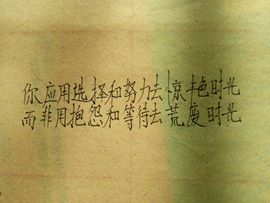 你应用选择和努力去惊艳时光
而非用抱怨和等待去荒废时光